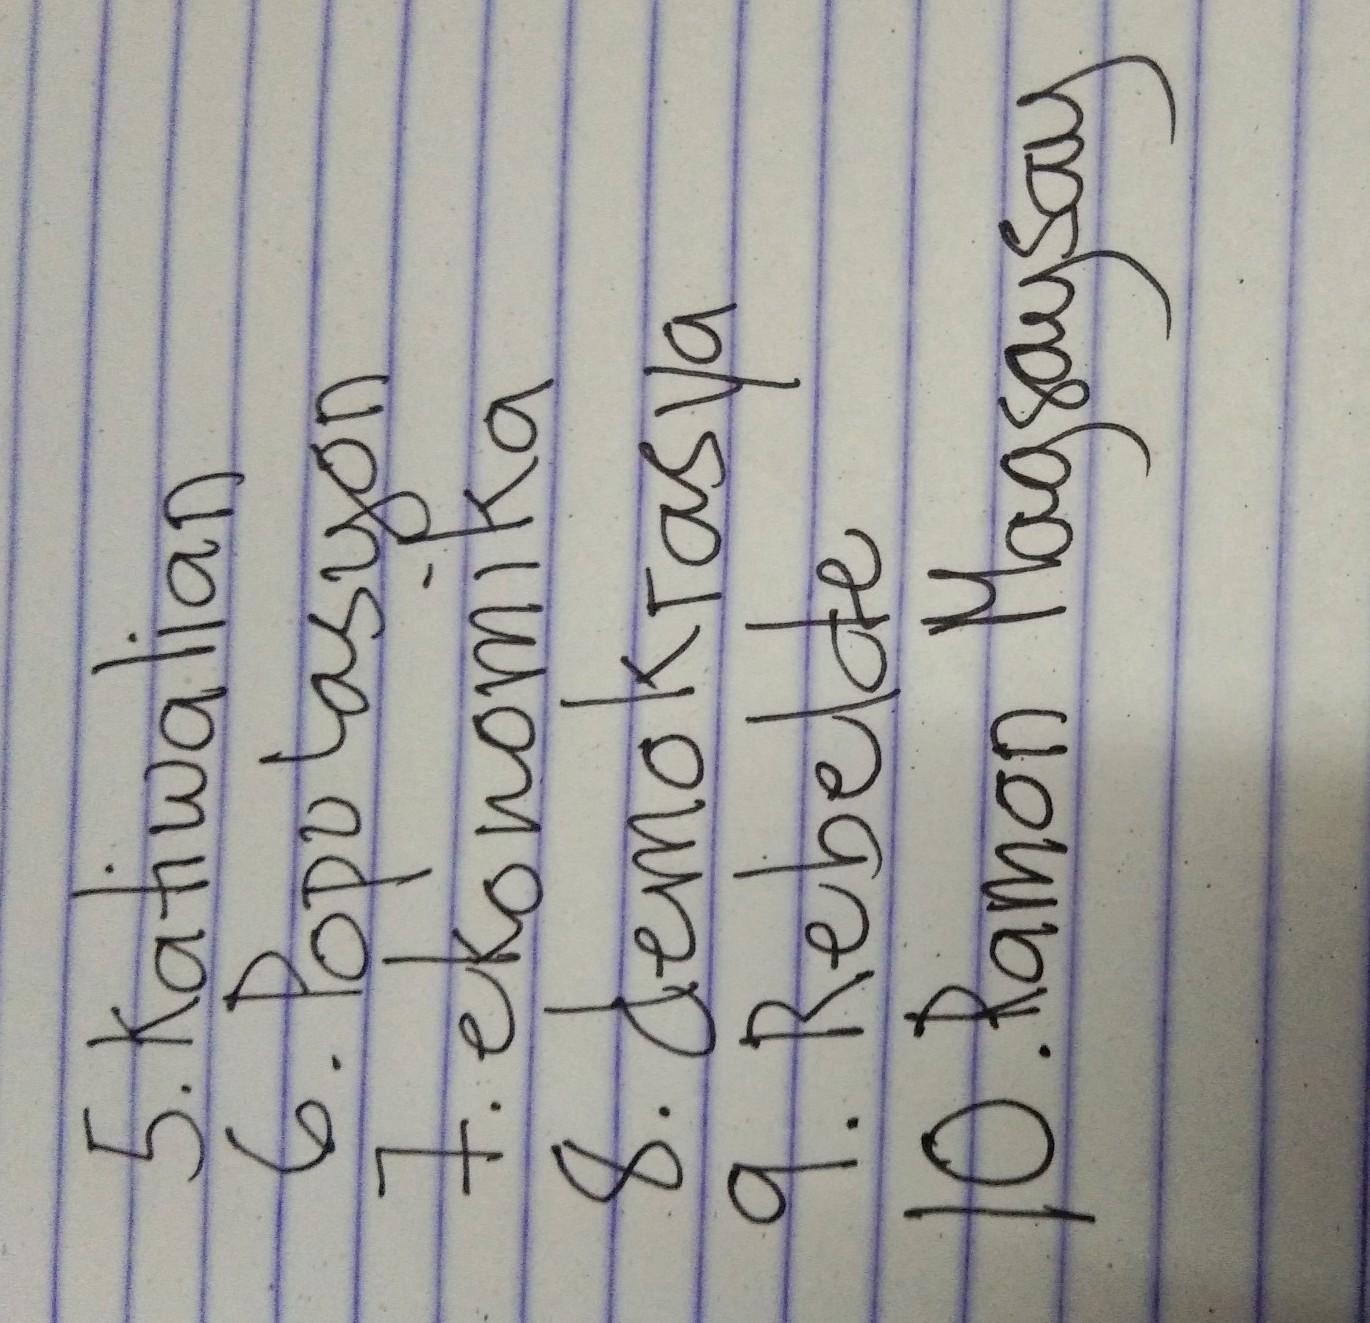 5. Katiwalian
6. Populasyon
7. ekonomika
8. demokrasya
9. Rebelote
10. Ramon Magsaysay